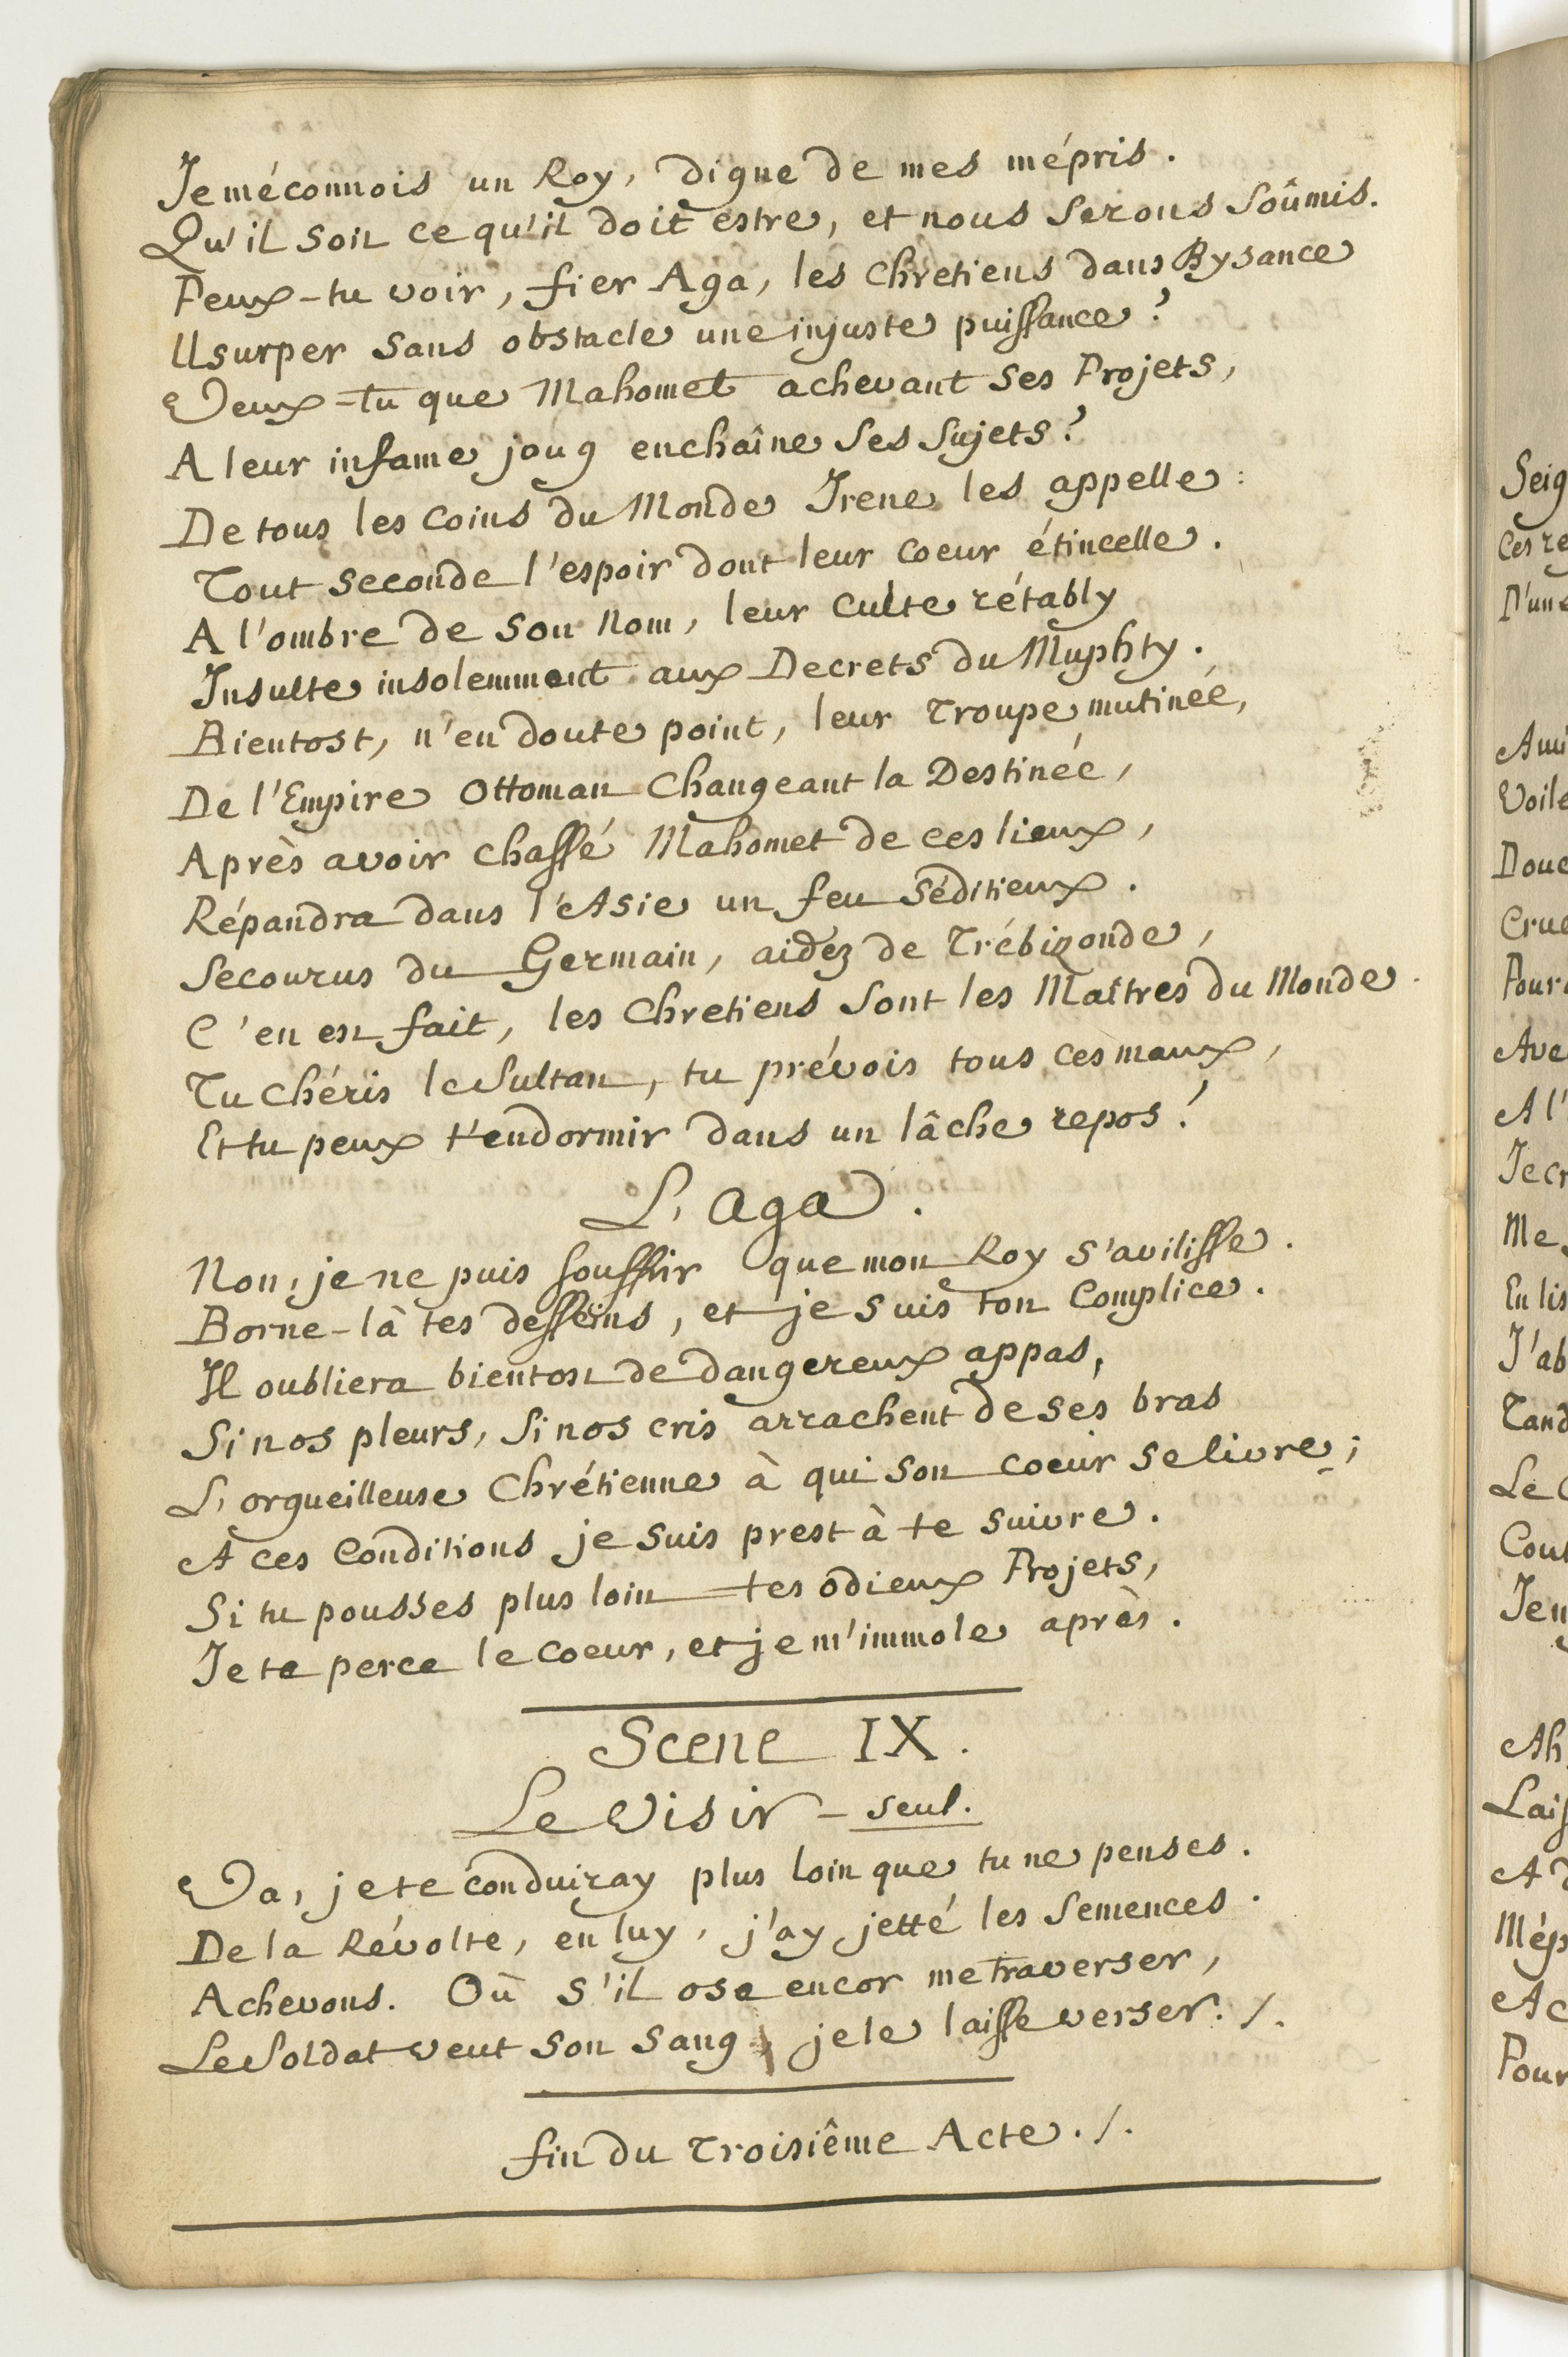 Je méconnois un Roy, digne de mes mépris.
Qu'il soit ce qu'il doit estre, et nous serons soûmis.
Peux-tu voir, fier Aga, les Chretiens dans Bysance
Usurper sans obstacle une injuste puissance?
Veux-tu que Mahomet achevant ses Projets,
A leur infame joug enchaîne ses sujets?
De tous les coins du Monde Irene les appelle:
Tout seconde l'espoir dont leur coeur étincelle.
A l'ombre de son nom, leur culte rétably
Insulte insolemment aux Decrets du Muphty.
Bientost, n'en doute point, leur troupe mutinée,
De l'Empire Ottoman changeant la Destinée,
Après avoir chassé Mahomet de ces lieux,
Répandra dans l'Asie un feu séditieux.
Secourus du Germain, aidez de Trébizonde,
C'en est fait, les Chretiens sont les Maîtres du Monde.
Tu chéris le Sultan, tu prévois tous ces maux,
Et tu peux t'endormir dans un lâche repos!
L'Aga.
Non, je ne puis souffrir que mon Roy s'avilisse.
Borne-là tes desseins, et je suis ton Complice.
Il oubliera bientost de dangereux appas,
Si nos pleurs, si nos cris arrachent de ses bras
L'orgueilleuse Chrétienne à qui son coeur se livre;
A ces Conditions je suis prest à te suivre.
Si tu pousses plus loin tes odieux Projets,
Je te perce le coeur, et je m'immole après.
Scene IX.
Le Visir - seul.
Va, je te conduiray plus loin que tu ne penses.
De la Révolte, en luy, j'ay jetté les semences.
Achevons. Où s'il ose encor me traverser,
Le Soldat veut son sang, je le laisse verser. /.
fin du Troisiême Acte. /.
Seig
Ces re
D'une
Ami
Voile
Douc
Crue
Pour
Ave
A l'
Je cr
Me
En lis
J'ab
Tand
Le C
Cout
Jen
Ah
Lais
A
Mép
Ac
Pour